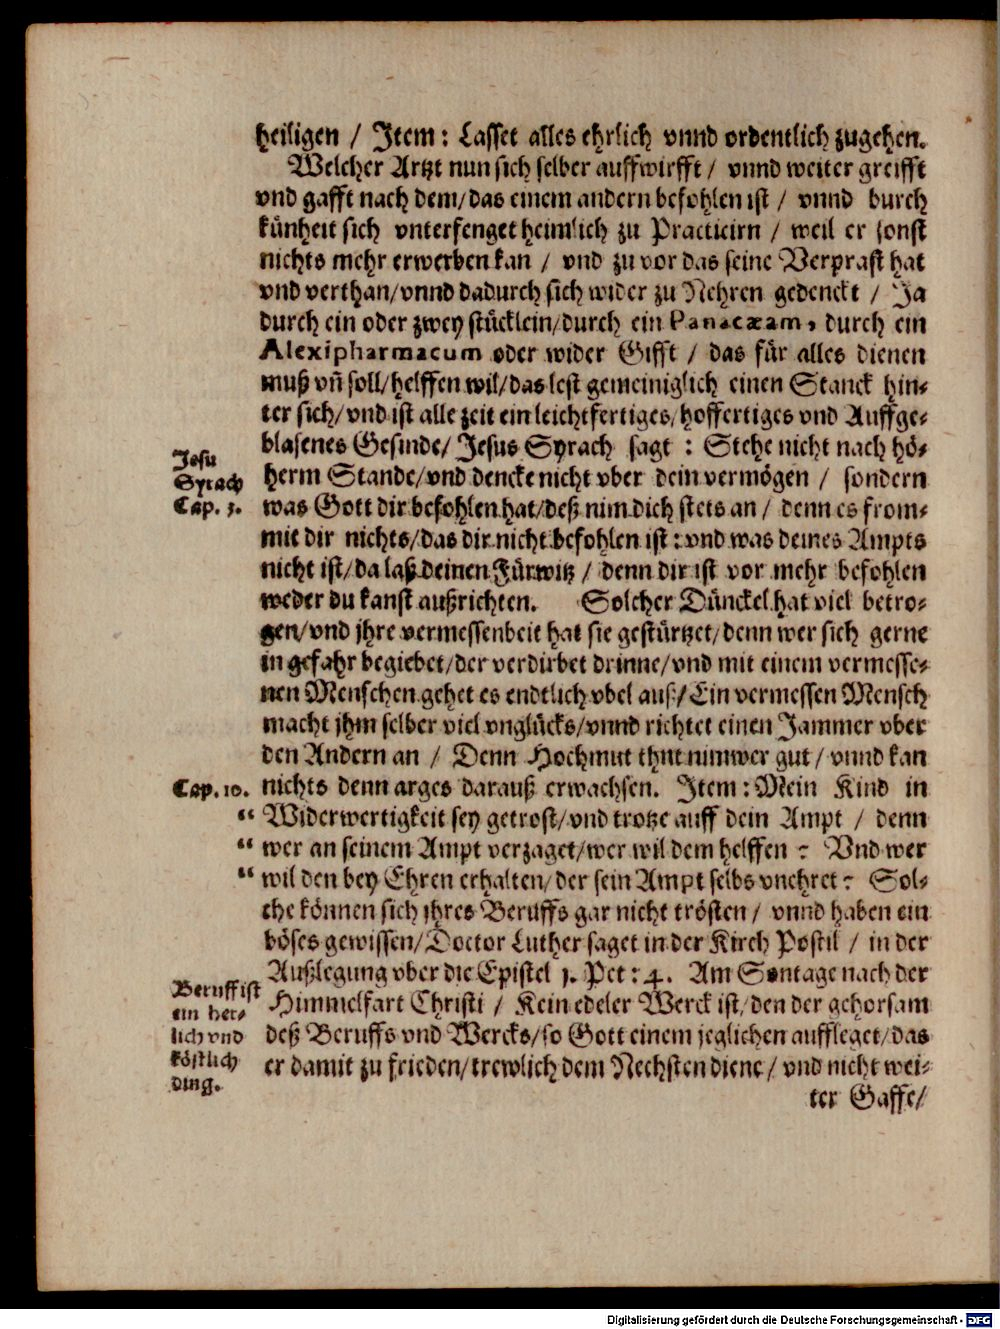 heiligen / Item: Lasset alles ehrlich vnnd ordentlich zugehen.
Welcher Artzt nun sich selber auffwirfft / vnnd weiter greifft
vnd gafft nach dem/das einem andern befohlen ist / vnnd durch
künheit sich vnterfenget heimlich zu Practicirn / weil er sonst
nichts mehr erwerben kan / vnd zu vor das seine Verprast hat
vnd verthan/vnnd dadurch sich wider zu Nehren gedenckt / Ja
durch ein oder zwey stücklein/durch ein Panacæam, durch ein
Alexipharmacum oder wider Gifft / das für alles dienen
muß vñ soll/helffen wil/das lest gemeiniglich einen Stanck hin-
ter sich/vnd ist alle zeit ein leichtfertiges/hoffertiges vnd Auffge-
blasenes Gesinde/ Jesus Syrach sagt : Stehe nicht nach hö-
Jesu
Syrach
Cap. 3.
herm Stande/vnd dencke nicht vber dein vermögen / sondern
was Gott dir befohlen hat/deß nim dich stets an / denn es from-
mit dir nichts/das dir nicht befohlen ist : vnd was deines Ampts
nicht ist/da laß deinen Fürwitz / denn dir ist vor mehr befohlen
weder du kanst außrichten. Solcher Dünckel hat viel betro-
gen/vnd jhre vermessenheit hat sie gestürtzet/denn wer sich gerne
in gefahr begiebet/der verdirbet drinne/vnd mit einem vermesse-
nen Menschen gehet es endtlich vbel aus/Ein vermessen Mensch
macht jhm selber viel vnglücks/vnnd richtet einen Jammer vber
den Andern an / Denn Hochmut thut nimmer gut / vnnd kan
Cap. 10.
nichts denn arges darauß erwachsen. Item : Mein Kind in
“ Widerwertigkeit sey getrost/vnd trotze auff dein Ampt / denn
“ wer an seinem Ampt verzaget/wer wil dem helffen ? Vnd wer
“ wil den bey Ehren erhalten/der sein Ampt selbs vnehret ? Sol-
che können sich jhres Beruffs gar nicht trösten / vnnd haben ein
böses gewissen/Doctor Luther saget in der Kirch Postil / in der
Außlegung vber die Epistel 1. Pet : 4. Am Sontage nach der
Beruff ist
ein her-
lich vnd
köstlich
ding.
Himmelfart Christi / Kein edeler Werck ist/den der gehorsam
deß Beruffs vnd Wercks/so Gott einem jeglichen auffleget/das
er damit zu frieden/trewlich dem Nechsten diene / vnd nicht wei-
ter Gaffe/
Digitalisierung gefördert durch die Deutsche Forschungsgemeinschaft - DFG